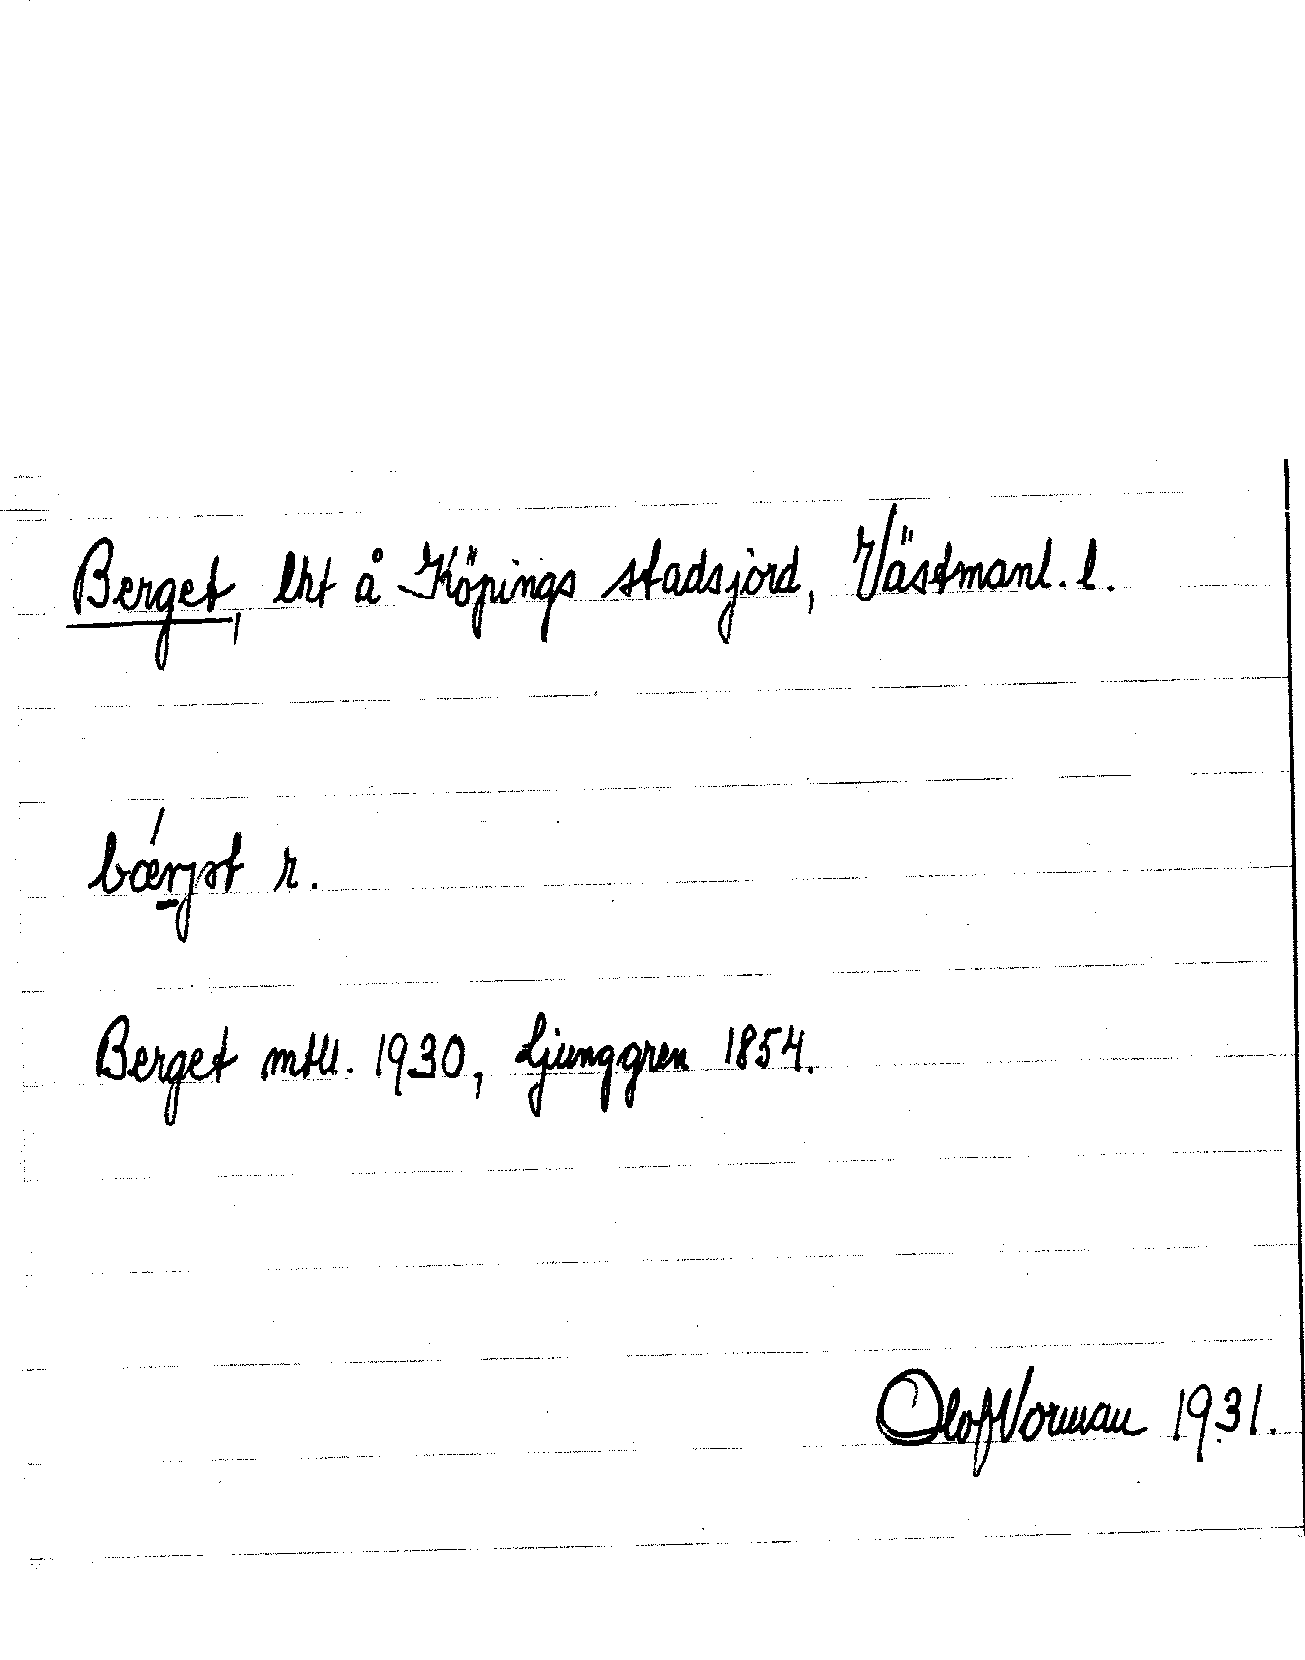 Berget, lht å Köpings stadsjord, Västmanl. l.
bærjət r.
Berget mtll. 1930, Ljunggren 1854.
Olof Vorman 1931.